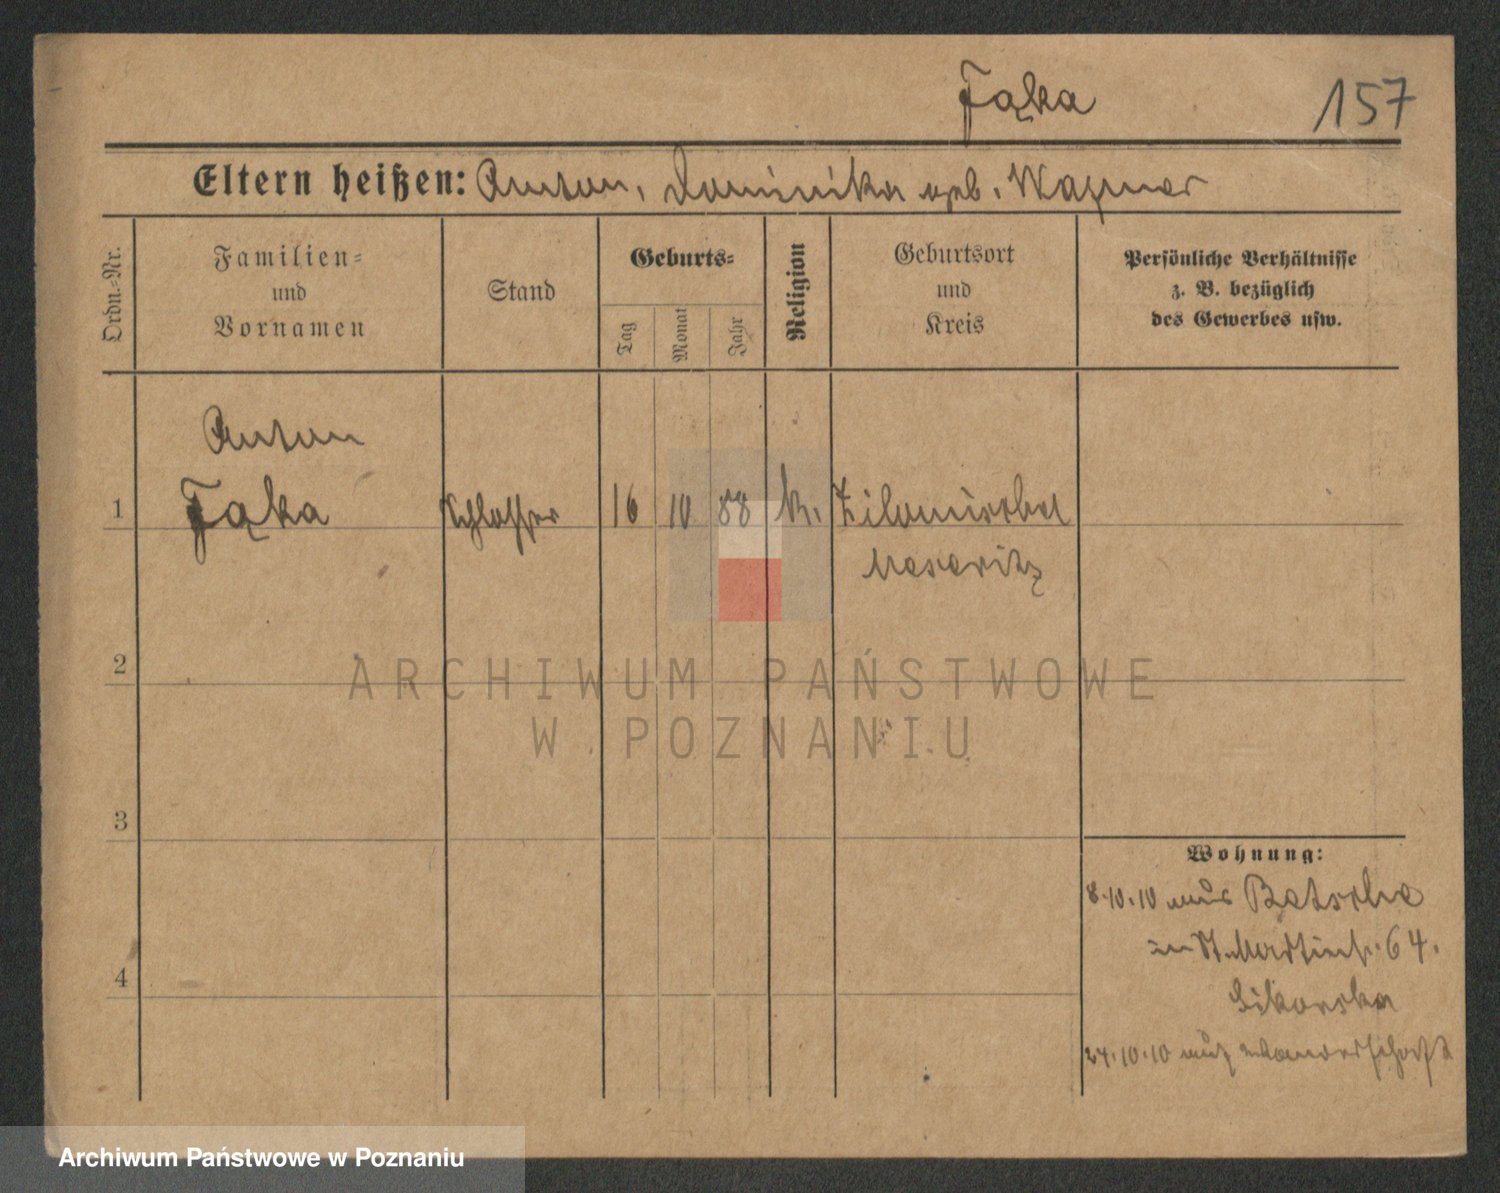 Fąka
157
Eltern heißen: Anton, Dominika geb. Wagner
Ordn.-Nr.
Familien-
und
Vornamen
Stand
Geburts-
Tag
Monat
Jahr
Religion
Geburtsort
und
Kreis
Persönliche Verhältnisse
z. B. bezüglich
des Gewerbes usw.
Anton
1 Fąka Schlosser 16 10 88 k.
Meseritz
2
3
4
Wohnung:
8.10.10 aus Betsche
in St. Martinstr. 64.
Sikorska
24.10.10 auf Wanderschaft
ARCHIWUM PAŃSTWOWE
W POZNANIU
Archiwum Państwowe w Poznaniu